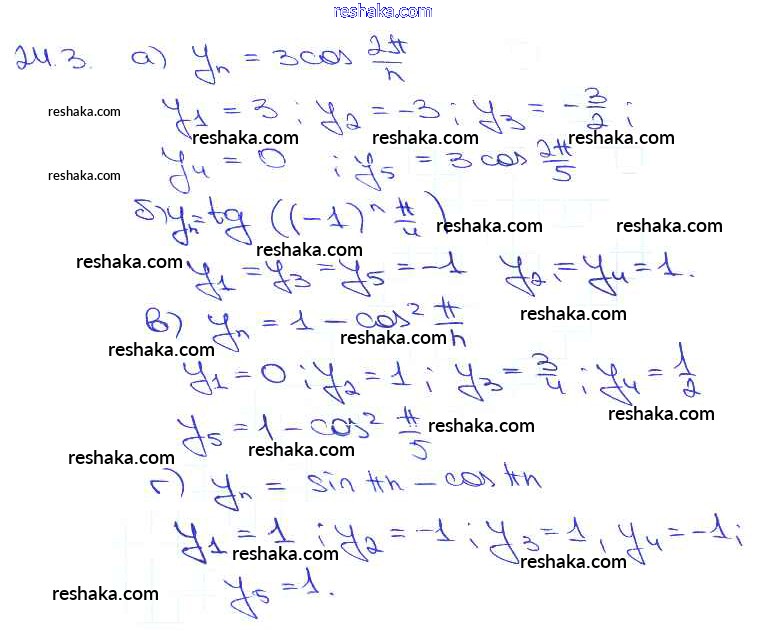 reshaka.com
24.3. а) yₙ = 3cos 2π/n
reshaka.com y₁ = 3 ; y₂ = -3 ; y₃ = -3/2 ;
reshaka.com reshaka.com reshaka.com
reshaka.com y₄ = 0 ; y₅ = 3 cos 2π/5
б) yₙ = tg ((-1)ⁿ π/4)
reshaka.com reshaka.com
reshaka.com
reshaka.com y₁ = y₃ = y₅ = -1 y₂ = y₄ = 1.
reshaka.com
в) yₙ = 1 - cos² π/n
reshaka.com reshaka.com
y₁ = 0 ; y₂ = 1 ; y₃ = 3/4 ; y₄ = 1/2
reshaka.com
y₅ = 1 - cos² π/5 reshaka.com
reshaka.com reshaka.com
г) yₙ = sin πn - cos πn
y₁ = 1 ; y₂ = -1 ; y₃ = 1 , y₄ = -1 ;
reshaka.com reshaka.com
reshaka.com y₅ = 1.